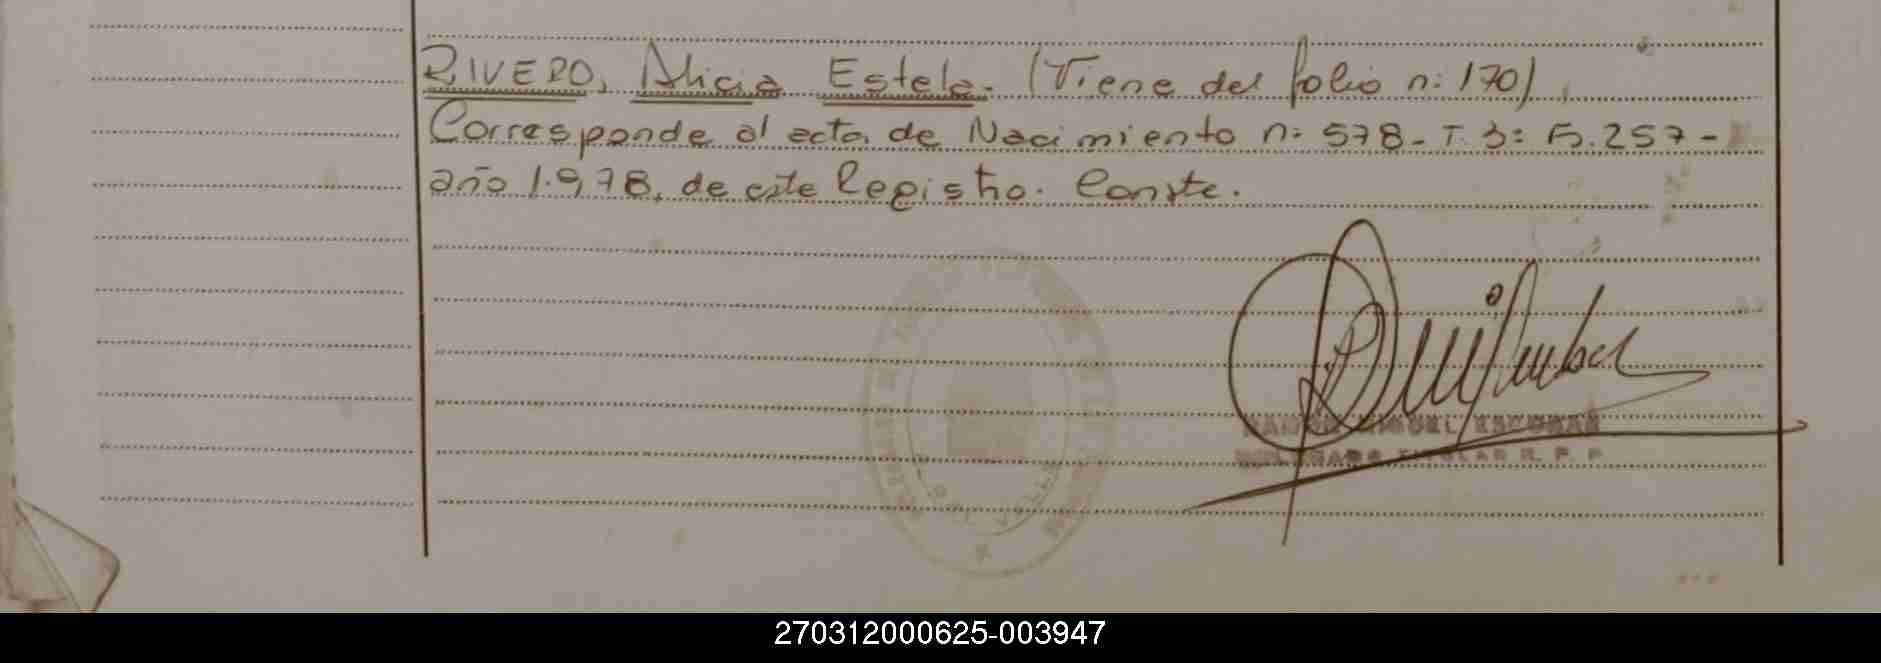 RIVERO, Alicia Estela. (Viene del folio n: 170)
Corresponde al acta de Nacimiento n: 578 - T. 3: F. 257 -
año 1.978, de este Registro. Conste.
RAMON MIGUEL ESCOBAR
TITULAR R. P. P.
DEL VALLE
270312000625-003947